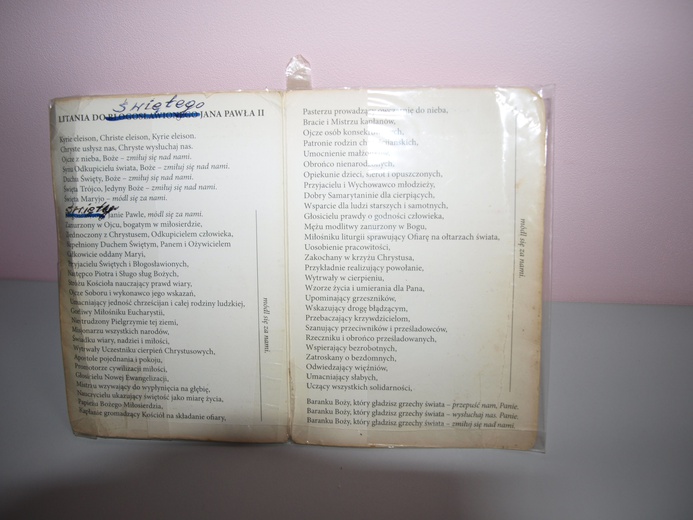 Świętego
LITANIA DO BŁOGOSŁAWIONEGO JANA PAWŁA II
Kyrie eleison, Christe eleison, Kyrie eleison.
Chryste usłysz nas, Chryste wysłuchaj nas.
Ojcze z nieba, Boże – zmiłuj się nad nami.
Synu Odkupicielu świata, Boże – zmiłuj się nad nami.
Duchu Święty, Boże – zmiłuj się nad nami.
Święta Trójco, Jedyny Boże – zmiłuj się nad nami.
Święta Maryjo – módl się za nami.
Święty Janie Pawle, módl się za nami.
Zanurzony w Ojcu, bogatym w miłosierdzie,
Zjednoczony z Chrystusem, Odkupicielem człowieka,
Napełniony Duchem Świętym, Panem i Ożywicielem
Całkowicie oddany Maryi,
Przyjacielu Świętych i Błogosławionych,
Następco Piotra i Sługo sług Bożych,
Stróżu Kościoła nauczający prawd wiary,
Ojcze Soboru i wykonawco jego wskazań,
Umacniający jedność chrześcijan i całej rodziny ludzkiej,
Gorliwy Miłośniku Eucharystii,
Niestrudzony Pielgrzymie tej ziemi,
Misjonarzu wszystkich narodów,
Świadku wiary, nadziei i miłości,
Wytrwały Uczestniku cierpień Chrystusowych,
Apostole pojednania i pokoju,
Promotorze cywilizacji miłości,
Głosicielu Nowej Ewangelizacji,
Mistrzu wzywający do wypłynięcia na głębię,
Nauczycielu ukazujący świętość jako miarę życia,
Papieżu Bożego Miłosierdzia,
Kapłanie gromadzący Kościół na składanie ofiary,
módl się za nami.
Pasterzu prowadzący do nieba,
Bracie i Mistrzu kapłanów,
Ojcze osób
Patronie rodzin
Umocnienie
Obrońco
Opiekunie dzieci, sierot i opuszczonych,
Przyjacielu i Wychowawco młodzieży,
Dobry Samarytaninie dla cierpiących,
Wsparcie dla ludzi starszych i samotnych,
Głosicielu prawdy o godności człowieka,
Mężu modlitwy zanurzony w Bogu,
Miłośniku liturgii sprawujący Ofiarę na ołtarzach świata,
Uosobienie pracowitości,
Zakochany w krzyżu Chrystusa,
Przykładnie realizujący powołanie,
Wytrwały w cierpieniu,
Wzorze życia i umierania dla Pana,
Upominający grzeszników,
Wskazujący drogę błądzącym,
Przebaczający krzywdzicielom,
Szanujący przeciwników i prześladowców,
Rzeczniku i obrońco prześladowanych,
Wspierający bezrobotnych,
Zatroskany o bezdomnych,
Odwiedzający więźniów,
Umacniający słabych,
Uczący wszystkich solidarności,
módl się za nami.
Baranku Boży, który gładzisz grzechy świata – przepuść nam, Panie.
Baranku Boży, który gładzisz grzechy świata – wysłuchaj nas, Panie.
Baranku Boży, który gładzisz grzechy świata – zmiłuj się nad nami.